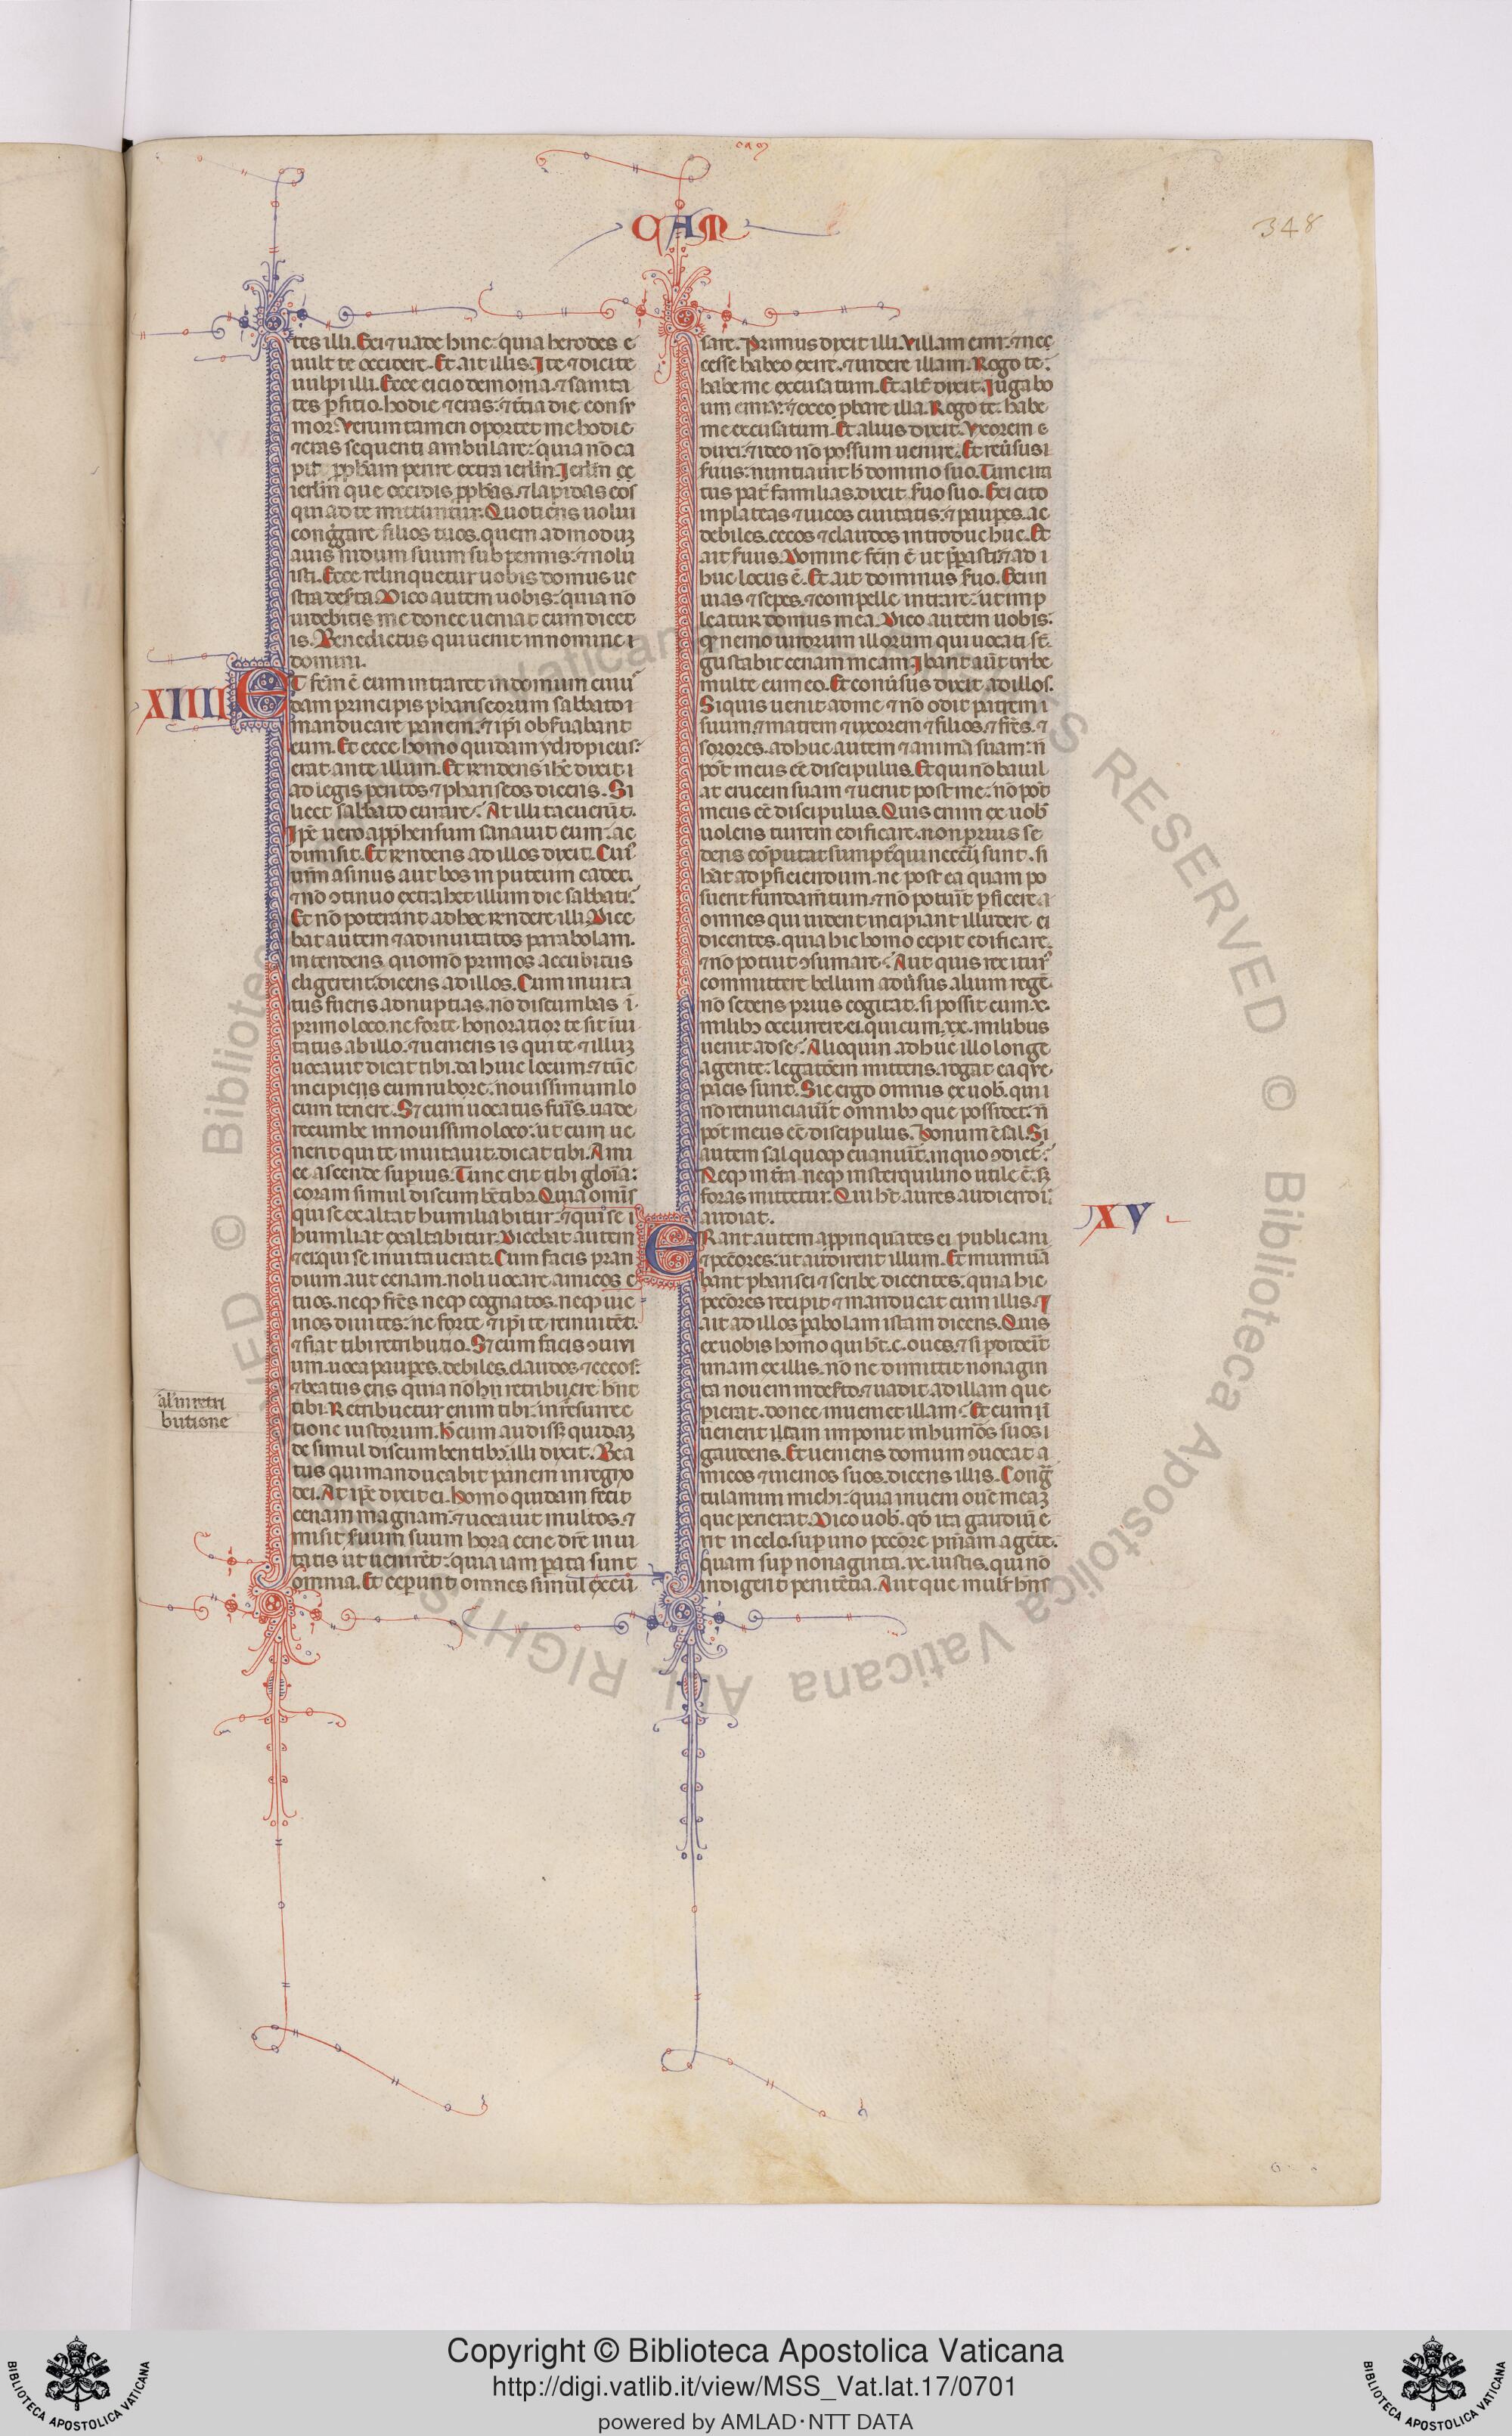 CAM
348
tes illi. Exi ⁊ uade hinc: quia herodes e
uult te occidere. Et ait illis. Ite ⁊ dicite
uulpi illi. Ecce eicio demonia. ⁊ sanita
tes ꝑficio. hodie ⁊ cras: ⁊ t̄cia die consū
mor. Verum tamen oportet me hodie
⁊ cras sequenti ambulare: quia nō ca
pit ꝓph̄am perire extra ierl̄m. Ierl̄m
ierl̄m que occidis ꝓph̄as. ⁊ lapidas eos
qui ad te mittuntur. Quotiens uolui
cong̃gare filios tuos. quem admoduꝫ
auis nidum suum sub pennis: ⁊ nolu
isti. Ecce relinquetur uobis domus ue
stra des̄ta. Dico autem uobis: quia nō
uidebitis me donec ueniat cum dicet
is. Benedictus qui uenit in nomine i
domini.
XIIII
ET fc̄m ē cum intraret in domum cuiuˀ
dam principis phariseorum sabbato i
manducare panem: ⁊ ip̄i obs̄uabant
eum. Et ecce homo quidam ydropicus:
erat ante illum. Et rn̄dens ih̄c dixit i
ad legis peritos ⁊ phariseos dicens. Si
licet sabbato curare? At illi tacuerūt.
Ip̄e uero app̄hensum sanauit eum: ac
dimisit. Et rn̄dens ad illos dixit. Cuiˀ
ur̄m asinus aut bos in puteum cadet.
⁊ nō ꝯtinuo extrahet illum die sabbati?
Et nō poterant ad hec rn̄dere illi. Dice
bat autem ⁊ ad inuitatos parabolam.
intendens quom̄o primos accubitus
eligerent: dicens ad illos. Cum inuita
tus fueris ad nuptias. nō discumbas i
primo loco. ne forte honoratior te sit īui
tatus ab illo. ⁊ ueniens is qui te ⁊ illuꝫ
uocauit dicat tibi. da huic locum. ⁊ tūc
incipiens cum rubore. nouissimum lo
cum tenere. Sꝫ cum uocatus fuīs. uade
recumbe in nouissimo loco: ut cum ue
nerit qui te inuitauit. dicat tibi. Ami
ce ascende supius. Tunc erit tibi gloīa:
coram simul discumbētibꝫ. Quia omīs
qui se exaltat humiliabitur: ⁊ qui se i
humiliat exaltabitur. Dicebat autem
⁊ ei qui se inuitauerat. Cum facis pran
dium aut cenam. noli uocare amicos e
tuos. neqꝫ fr̄es neqꝫ cognatos. neqꝫ uic
inos diuites: ne forte ⁊ ip̄i te reinuitēt.
⁊ fiat tibi retributio. Sꝫ cum facis ꝯuiui
um. uoca pauꝑes. debiles. claudos ⁊ cecos:
⁊ beatus eris quia nō hn̄t retribuere
tibi. Retribuetur enim tibi: in resurrec
al' in retri
butione
tione iustorum. H̄ cum audissꝫ quidaꝫ
de simul discumbentibꝫ: illi dixit. Bea
tus qui manducabit panem in regno
dei. At ip̄e dixit ei. Homo quidam fecit
cenam magnam: ⁊ uocauit multos. ⁊
misit s̄uum suum hora cene dic̄e inui
tatis ut uenirēt: quia iam ꝑata sunt
omnia. Et ceperunt omnes simul excu
sare. Primus dixit illi. Villam emi: ⁊ nec
cesse habeo exire. ⁊ uidere illam. Rogo te:
habe me excusatum. Et alt̄ dixit. Iuga bo
um emi .v. ⁊ eo ꝓbare illa. Rogo te. habe
me excusatum. Et alius dixit. Vxorem
duxi: ⁊ ideo nō possum uenire. Et reūsus i
s̄uus: nuntiauit h̄ domino suo. Tunc ira
tus pat̄ familias. dixit s̄uo suo. Exi cito
in plateas ⁊ uicos ciuitatis: ⁊ pauꝑes. ac
debiles. cecos ⁊ claudos introduc huc. Et
ait s̄uus. Domine fc̄m ē ut īꝑasti: ⁊ ad i
huc locus ē. Et ait dominus s̄uo. Exi in
uias ⁊ sepes. ⁊ compelle intrare: ut imp
leatur domus mea. Dico autem uobis:
qꝫ nemo uirorum illorum qui uocati st̄.
gustabit cenam meam. Ibant aūt turbe
multe cum eo. Et conūsus dixit ad illos.
Siquis uenit ad me ⁊ nō odit patrem i
suum. ⁊ matrem ⁊ uxorem ⁊ filios. ⁊ fr̄es. ⁊
sorores. adhuc autem ⁊ animā suam: n̄
pōt meus eē discipulus. Et qui nō baiul
at crucem suam ⁊ uenit post me: nō pōt
meus eē discipulus. Quis enim ex uob̄
uolens turrem edificare. non prius se
dens cōputat sumptˀ qui neccīj sunt. si
hat ad ꝑficiendum. ne post ea quam po
suerit fundam̄tum. ⁊ nō potuīt ꝑficere.
omnes qui uident incipiant illudere ei
dicentes. quia hic homo cepit edificare.
⁊ nō potuit ꝯsumare? Aut quis rex iturˀ
committere bellum adūsus alium regē.
nō sedens prius cogitat. si possit cum .x.
milibꝫ occurrere ei. qui cum .xx. milibus
uenit ad se? Alioquin adhuc illo longe
agente: legatōem mittens. rogat ea q̄
pacis sunt. Sic ergo omnis ex uob̄. qui i
nō renunciauīt omnibꝫ que possidet: n̄
pōt meus eē discipulus. Bonum ē sal. Si
autem sal quoqꝫ euanuīt. in quo ꝯdiet?
Neqꝫ in t̄ra neqꝫ in sterquilino utile ē. sꝫ
foras mittetur. Qui h̄t aures audiendi:
audiat.
XV
ERant autem appinquātes ei publicani
⁊ pec̄ores: ut audirent illum. Et murmura
bant pharisei ⁊ scribe dicentes: quia hic
pec̄ores recipit ⁊ manducat cum illis. ⁊
ait ad illos ꝑabolam istam dicens. Quis
ex uobis homo qui h̄t .c. oues. ⁊ si ꝑdidēit
unam ex illis. nōne dimittit nonagin
ta nouem in des̄to. ⁊ uadit ad illam que
pierat. donec inueniet illam? Et cum iṅ
uenerit illam imponit in humōs suos i
gaudens. Et ueniens domum ꝯuocat a
micos ⁊ uicinos suos. dicens illis. Cong̃
tulamini michi: quia inueni ouē meaꝫ
que perierat. Dico uob̄. qd̄ ita gaudiū e
rit in celo. suꝑ uno pec̄ore pn̄iam agēte.
quam suꝑ nonaginta .ix. iustis. qui nō
indigent penitētia. Aut que mulr̄ hn̄s
Copyright © Biblioteca Apostolica Vaticana
http://digi.vatlib.it/view/MSS_Vat.lat.17/0701
powered by AMLAD·NTT DATA
BIBLIOTECA APOSTOLICA VATICANA
BIBLIOTECA APOSTOLICA VATICANA